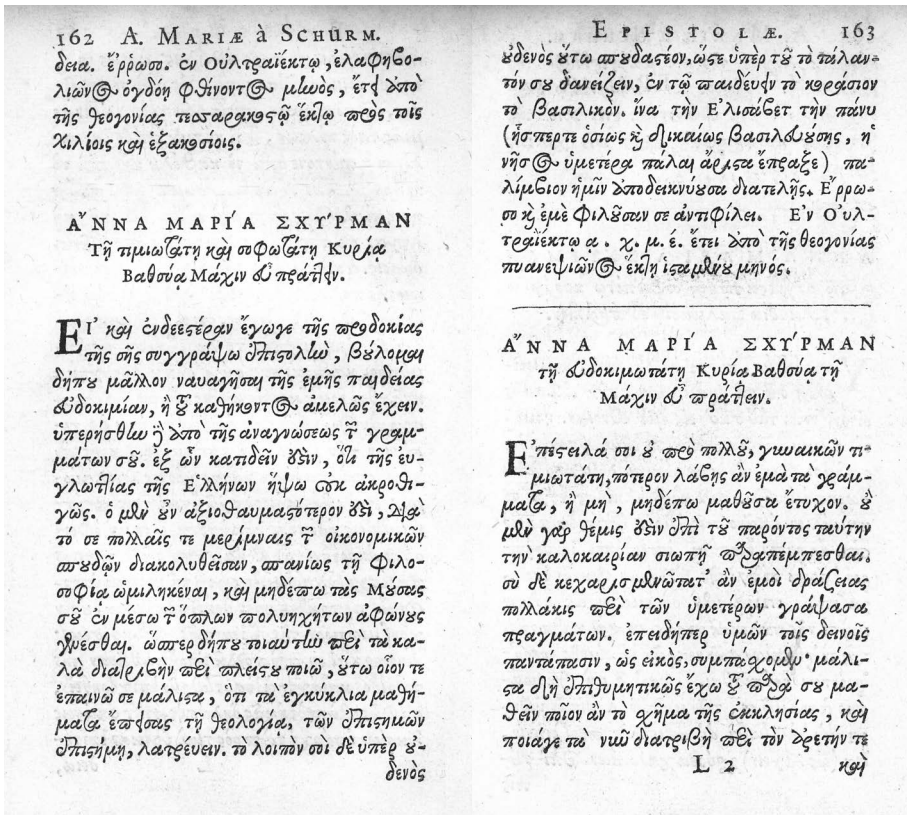 162 A. MARIÆ à SCHURM.
δεια. ἔῤῥωσο. ἐν Οὐλτραϊέκτῳ, ἐλαφηβο-
λιῶνος ὀγδόῃ φθίνοντος μηνὸς, ἔτει ἀπὸ
τῆς θεογονίας τεσσαρακοστῷ ἕκτῳ πρὸς τοῖς
χιλίοις καὶ ἑξακοσίοις.
ἌΝΝΑ ΜΑΡΊΑ ΣΧΥΡΜΑΝ
Τῇ τιμιωτάτῃ καὶ σοφωτάτῃ Κυρίᾳ
Βαθσούᾳ Μάχιν εὖ πράττειν.
ΕἸ καὶ ἐνδεεστέραν ἔγωγε τῆς προδοκίας
τῆς σῆς συγγράψω ἐπιστολὴν, βούλομαι
δήπου μᾶλλον ναυαγῆσαι τῆς ἐμῆς παιδείας
εὐδοκιμίαν, ἢ τοῦ καθήκοντος ἀμελῶς ἔχειν.
ὑπερήσθην γὰρ ἀπὸ τῆς ἀναγνώσεως τῶν γραμ-
μάτων σοῦ. ἐξ ὧν κατιδεῖν ἔστιν, ὅτι τῆς ευ-
γλωττίας τῆς Ἑλλήνων ἥψω οὐκ ἀκροθι-
γῶς. ὁ μὲν οὖν ἀξιοθαυμαςότερον ἐστὶ, διὰ
τό σε πολλαῖς τε μερίμναις τῶν οἰκονομικῶν
σπουδῶν διακολυθεῖσαν, σπανίως τῇ Φιλο-
σοφίᾳ ὡμιληκέναι, καὶ μηδέπω τὰς Μούσας
σοῦ ἐν μέσῳ τῶν ὅπλων πολυηχήτων ἀφώνους
γενέσθαι. ὥσπερ δήπου τοιαύτην περὶ τὰ κα-
λὰ διατριβὴν περὶ πλείςου ποιῶ, οὕτω οἷον τε
ἐπαινῶ σε μάλιςα, ὅτι τὰ ἐγκύκλια μαθή-
ματα ἔπεισας τῇ θεολογίᾳ, τῶν ἐπιςημῶν
ἐπιςήμῃ, λατρεύειν. τὸ λοιπὸν σοὶ δὲ ὑπὲρ οὐ-
δενὸς
EPISTOLÆ. 163
οὐδενὸς οὕτω σπουδαςέον, ὥςε ὑπὲρ τοῦ τὸ τάλαν-
τόν σου δανείζειν, ἐν τῷ παιδεύειν τὸ κοράσιον
τὸ βασιλικὸν. ἵνα τὴν Ἐλισάβετ τὴν πάνυ
(ἧσπερ τε ὁσίως καὶ δικαίως βασιλευούσης, ἡ
νῆσος ὑμετέρα πάλαι ἄριςα ἔπραξε) πα-
λίμβιον ἡμῖν ἀποδεικνύουσα διατελῇς. Ἔῤῥω-
σο καὶ ἐμὲ φιλοῦσαν σε ἀντιφίλει. Ἐν Οὐλ-
τραϊέκτῳ α. χ. μ. έ. ἔτει ἀπὸ τῆς θεογονίας
πυανεψιῶνος ἕκτῃ ἱςαμένου μηνός.
ἌΝΝΑ ΜΑΡΊΑ ΣΧΥΡΜΑΝ
τῇ εὐδοκιμωτάτῃ Κυρίᾳ Βαθσούᾳ τῇ
Μάχιν εὖ πράττειν.
Ἐπέςειλά σοι οὐ πρὸ πολλοῦ, γυναικῶν τι-
μιωτάτη, πότερον λάβῃς ἂν ἐμὰ τὰ γράμ-
ματα, ἢ μὴ, μηδέπω μαθοῦσα ἔτυχον. οὐ
μὲν γὰρ θέμις ἐστὶν ἐπὶ τοῦ παρόντος ταύτην
τὴν καλοκαιρίαν σιωπῇ παραπέμπεσθαι.
σὺ δὲ κεχαρισμενῶτατ' ἂν ἐμοὶ δράσειας
πολλάκις περὶ τῶν ὑμετέρων γράψασα
πραγμάτων. ἐπειδήπερ ὑμῶν τοῖς δεινοῖς
παντάπασιν, ὡς εἰκὸς, συμπάσχομεν· μάλι-
ςα δὴ ἐπιθυμητικῶς ἔχω τοῦ παρὰ σου μα-
θεῖν ποῖον ἂν τὸ σχῆμα τῆς ἐκκλησίας, καὶ
ποιάγε τὰ νῦν διατριβὴ περὶ τὸν ἀρετήν τε
L 2 καὶ